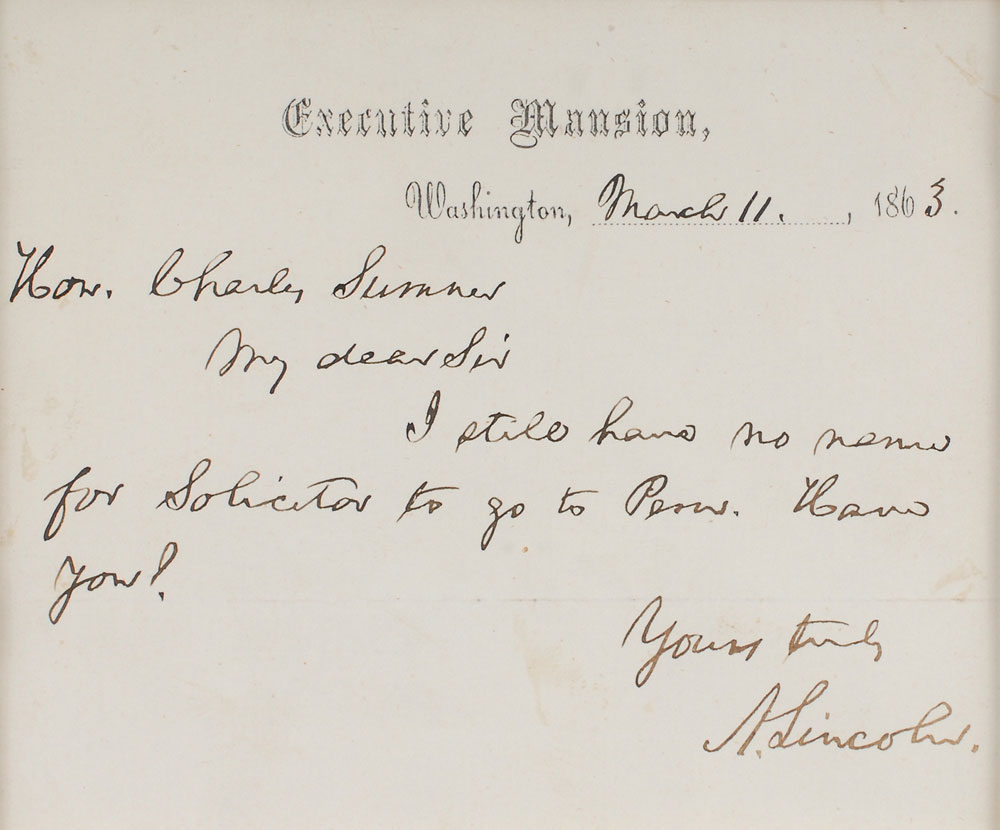 Executive Mansion,
Washington, March 11. , 1863.
Hon. Charles Sumner
My dear Sir
I still have no name
for Solicitor to go to Peru. Have
you?
Yours truly
A. Lincoln.